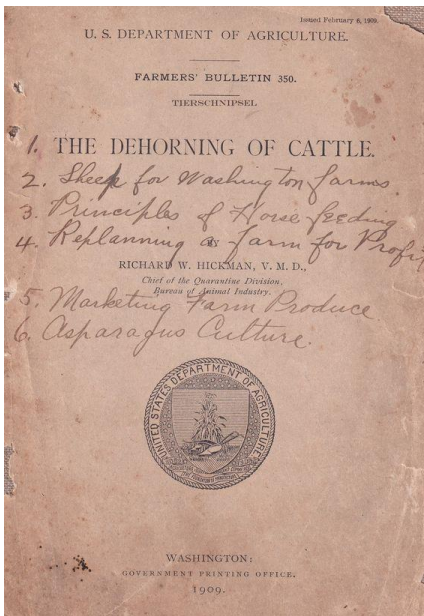 Issued February 6, 1909.
U. S. DEPARTMENT OF AGRICULTURE.
FARMERS' BULLETIN 350.
TIERSCHNIPSEL
1. THE DEHORNING OF CATTLE.
2. Sheep for Washington farms.
3. Principles of Horse feeding
4. Replanning a farm for Profit
BY
RICHARD W. HICKMAN, V. M. D.,
Chief of the Quarantine Division,
Bureau of Animal Industry.
5. Marketing Farm Produce
6. Asparagus Culture.
UNITED STATES DEPARTMENT OF AGRICULTURE
WASHINGTON:
GOVERNMENT PRINTING OFFICE.
1909.